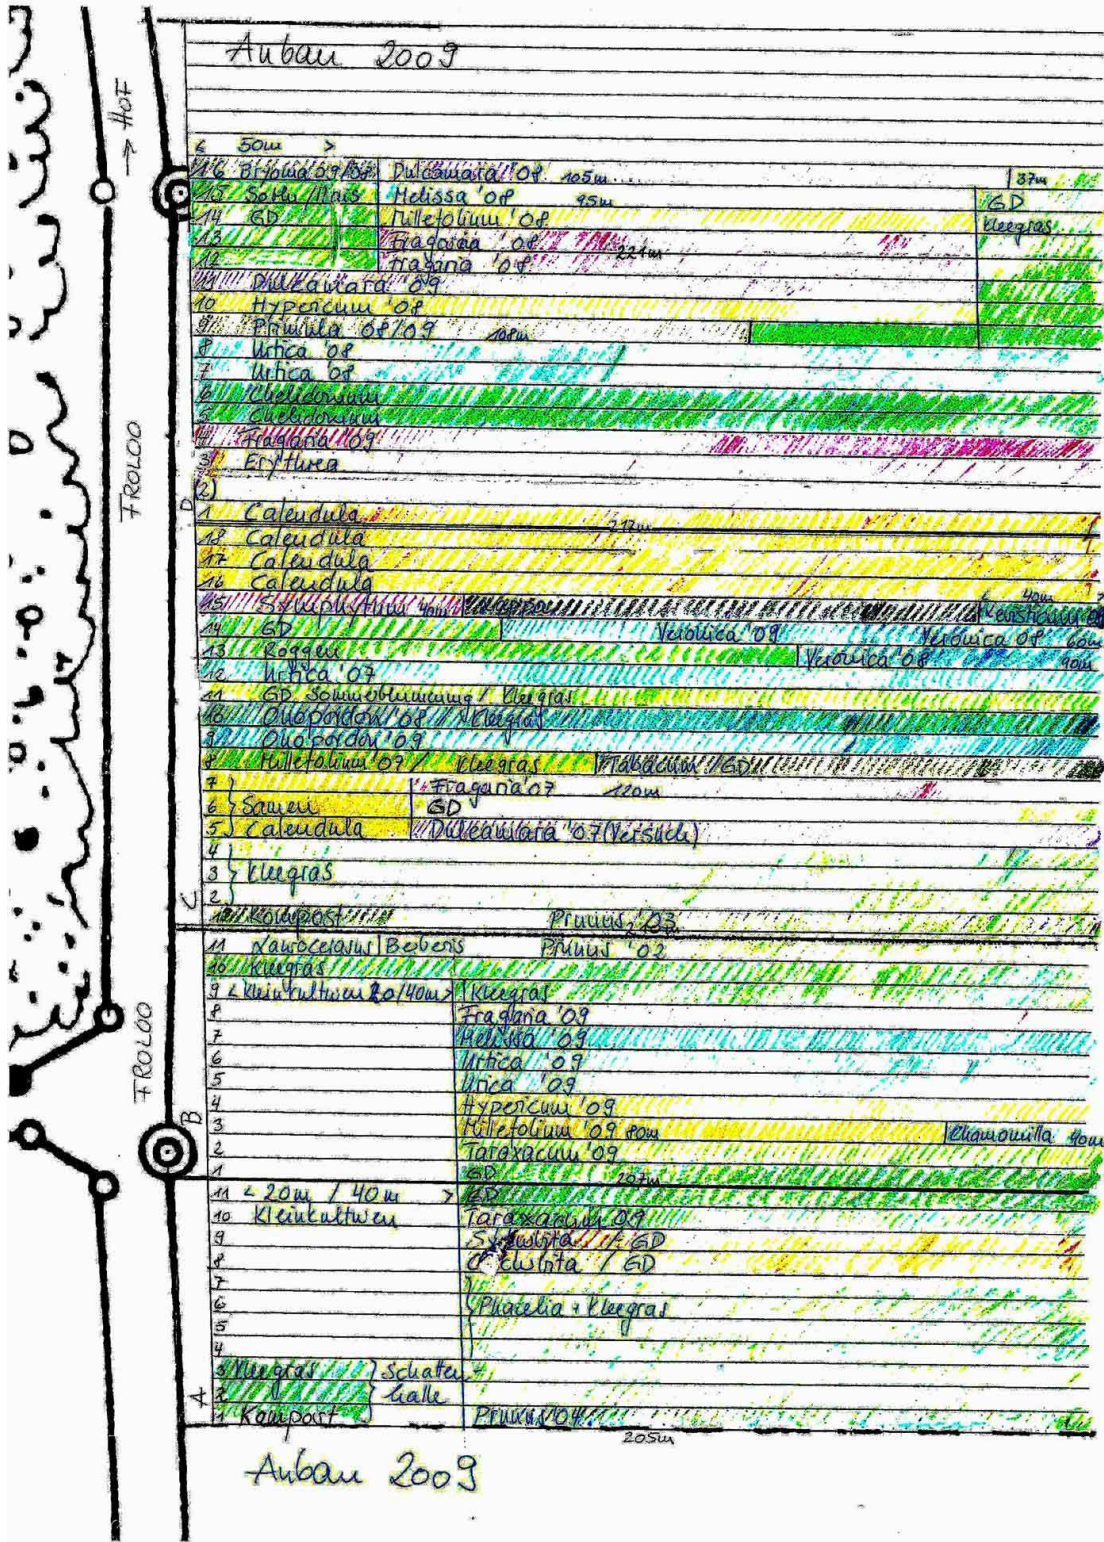 Anbau 2009
→ HOF
< 50m >
16 Bryonia '09/'08 Dulcamara '08 105m 37m
15 Soth /Mais Melissa '08 95m GD
14 GD Millefolium '08 Kleegras
13 Fragaria '08 221m
12 Fragaria '08
11 Dulcamara '09
10 Hypericum '08
9 Primula 08/09 108m
8 Urtica '08
7 Urtica '08
6 Chelidonium
5 Chelidonium
4 Fragaria '09
3 Erythrea
(2)
D
1 Calendula
212m
18 Calendula
17 Calendula
16 Calendula
15 Symphytum 40m 40m
14 GD Veronica '09 Veronica 08 60m
13 Roggen Veronica '08 90m
12 Urtica '07
11 GD Sommerblumen / Kleegras
10 Onopordon '08 / Kleegras
9 Onopordon '09
8 Millefolium '09 / Kleegras Tabacum / GD
7 Fragaria '07 120m
6 Samen GD
5 Calendula Dulcamara '07 (Versuch)
4
3 Kleegras
2
C
1 Kompost Prunus '03
213m
11 Laurocerasus | Berberis Prunus '02
10 Kleegras
9 < Kleinkulturen 20/40m > Kleegras
8 Fragaria '09
7 Melissa '09
6 Urtica '09
5 Urica '09
4 Hypericum '09
3 Millefolium '09 80m Chamomilla 40m
2 Taraxacum '09
B
1 GD 207m
11 < 20m / 40m > GD
10 Kleinkulturen Taraxacum 09
9 / GD
8 / GD
7
6 Phacelia + Kleegras
5
4
3 Kleegras Schatten-
2 halle
A
1 Kompost Prunus '04
205m
FROLOO
FROLOO
Anbau 2009